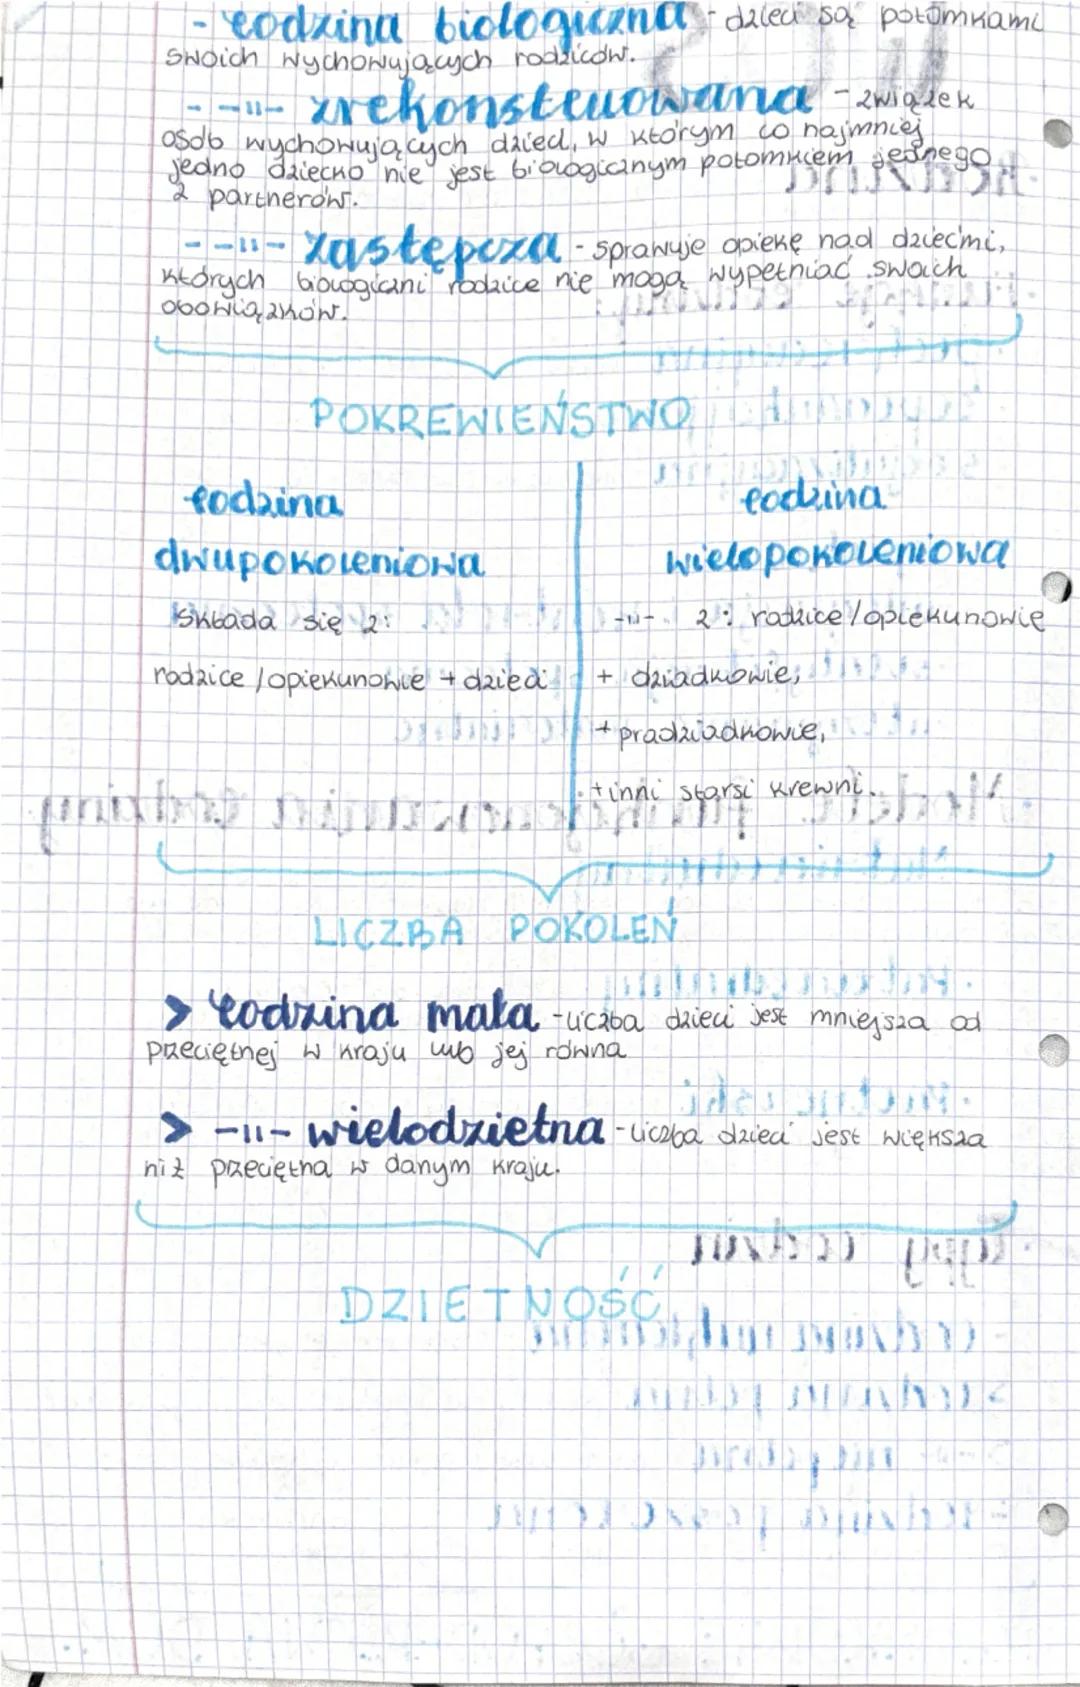 - rodzina biologiczna - dzieci są potomkami
swoich wychowujących rodziców.
- -11- zrekonstruowana - związek
osób wychowujących dzieci, w którym co najmniej
jedno dziecko nie jest biologicznym potomkiem jednego
z partnerów.
- -11- zastępcza - sprawuje opiekę nad dziećmi,
których biologiczni rodzice nie mogą wypełniać swoich
obowiązków.
POKREWIEŃSTWO
rodzina
dwupokoleniowa
Składa się z:
rodzice / opiekunowie + dzieci
rodzina
wielopokoleniowa
-11- z: rodzice / opiekunowie
+ dziadkowie,
+ pradziadkowie,
+ inni starsi krewni.
LICZBA POKOLEŃ
> rodzina mała - liczba dzieci jest mniejsza od
przeciętnej w kraju lub jej równa
> -11- wielodzietna - liczba dzieci jest większa
niż przeciętna w danym kraju.
DZIETNOŚĆ